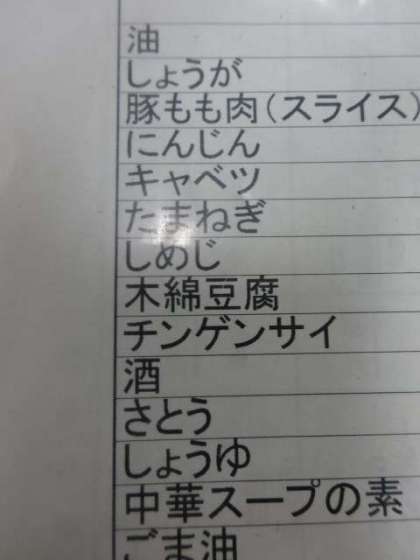 油
しょうが
豚もも肉(スライス)
にんじん
キャベツ
たまねぎ
しめじ
木綿豆腐
チンゲンサイ
酒
さとう
しょうゆ
中華スープの素
ごま油